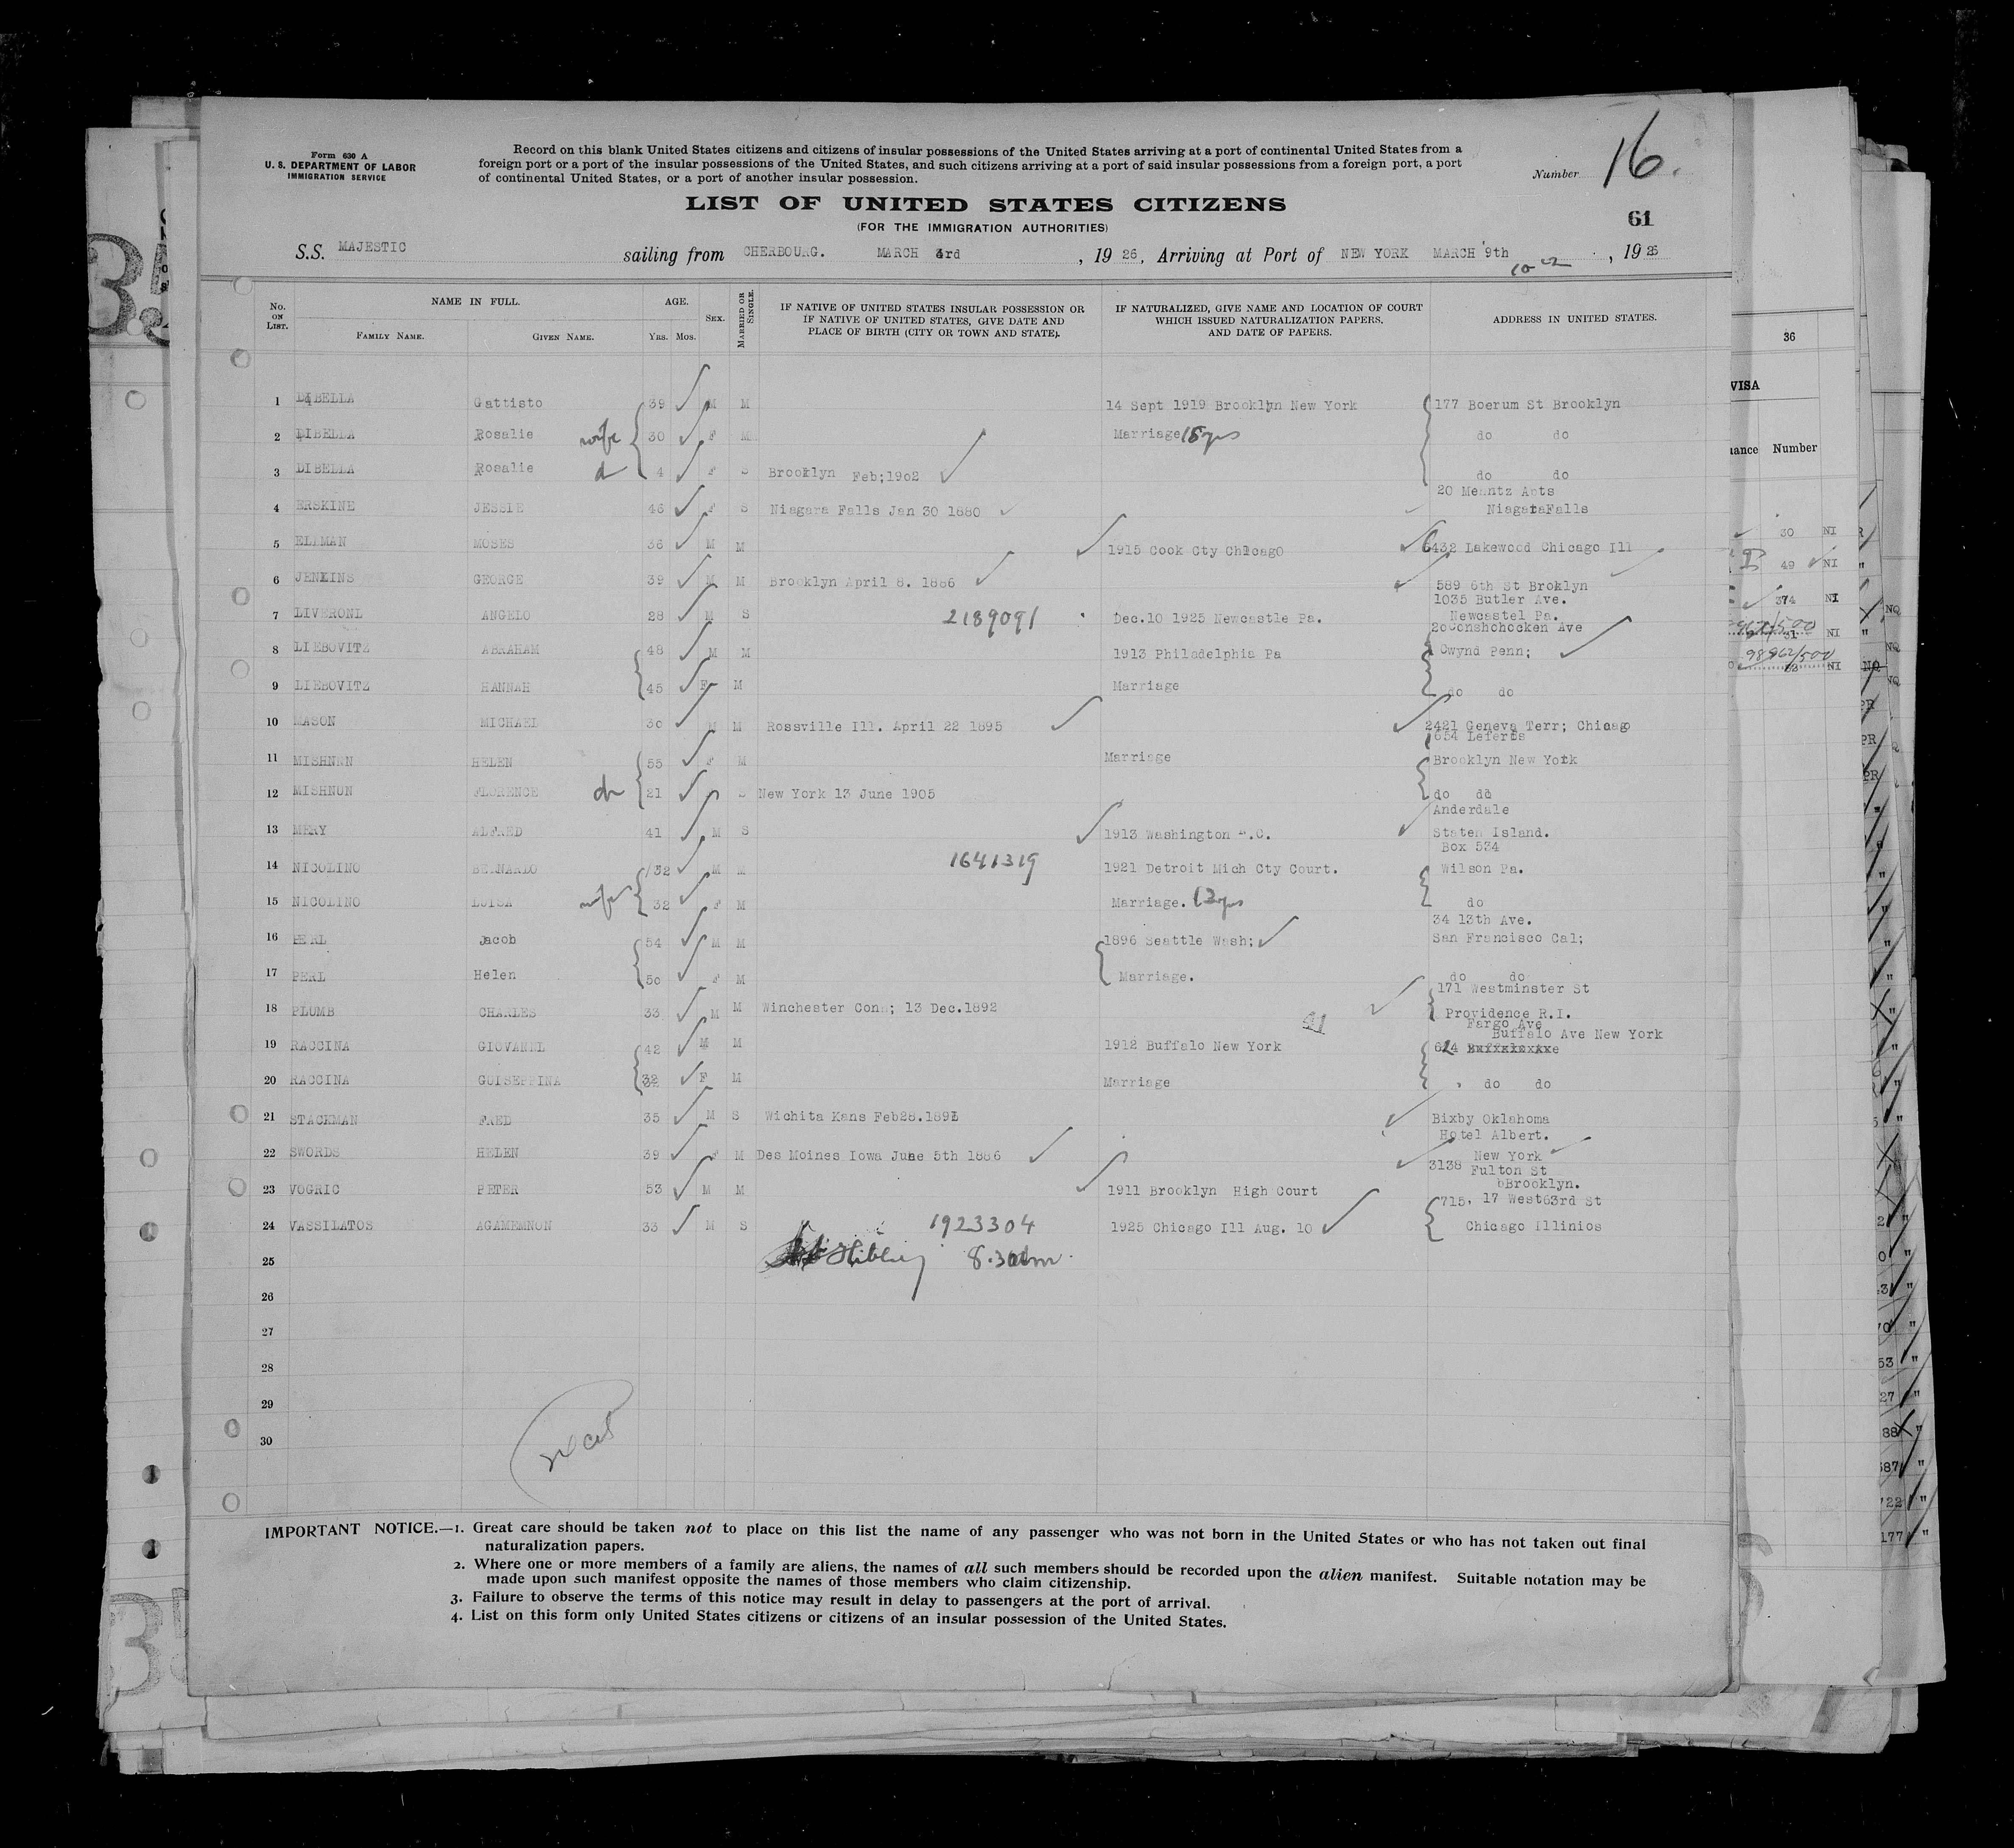 Form 630 A
U. S. DEPARTMENT OF LABOR
IMMIGRATION SERVICE
Record on this blank United States citizens and citizens of insular possessions of the United States arriving at a port of continental United States from a
foreign port or a port of the insular possessions of the United States, and such citizens arriving at a port of said insular possessions from a foreign port, a port
of continental United States, or a port of another insular possession.
Number 16.
LIST OF UNITED STATES CITIZENS
(FOR THE IMMIGRATION AUTHORITIES)
61
S.S. MAJESTIC sailing from CHERBOURG. MARCH 3rd , 19 26, Arriving at Port of NEW YORK MARCH 9th , 19 26
No. ON LIST. NAME IN FULL. AGE. SEX. MARRIED OR SINGLE. IF NATIVE OF UNITED STATES INSULAR POSSESSION OR IF NATIVE OF UNITED STATES, GIVE DATE AND PLACE OF BIRTH (CITY OR TOWN AND STATE). IF NATURALIZED, GIVE NAME AND LOCATION OF COURT WHICH ISSUED NATURALIZATION PAPERS, AND DATE OF PAPERS. ADDRESS IN UNITED STATES.
FAMILY NAME. GIVEN NAME. YRS. MOS.
1 DIBELLA Gattisto 39 M M 14 Sept 1919 Brooklyn New York 177 Boerum St Brooklyn
2 DIBELLA Rosalie wife 30 F M Marriage 15yrs do do
3 DIBELLA Rosalie d 4 F S Brooklyn Feb;1902 do do
4 ERSKINE JESSIE 46 F S Niagara Falls Jan 30 1880 20 Meantz Apts
Niagara Falls
5 ELLMAN MOSES 36 M M 1915 Cook Cty Chicago 6432 Lakewood Chicago Ill
6 JENKINS GEORGE 39 M M Brooklyn April 8. 1886 589 6th St Broklyn
7 LIVERONL ANGELO 28 M S 2189091 Dec.10 1925 Newcastle Pa. 1035 Butler Ave.
Newcastel Pa.
8 LIEBOVITZ ABRAHAM 48 M M 1913 Philadelphia Pa Conshohocken Ave
Cwynd Penn;
9 LIEBOVITZ HANNAH 45 F M Marriage do do
10 MASON MICHAEL 30 M M Rossville Ill. April 22 1895 2421 Geneva Terr; Chicago
11 MISHNUN HELEN 55 F M Marriage 654 Leferts
Brooklyn New York
12 MISHNUN FLORENCE 21 S New York 13 June 1905 do do
13 MERY ALFRED 41 M S 1913 Washington D.C. Anderdale
Staten Island.
14 NICOLINO BERNARDO 32 M M 1641319 1921 Detroit Mich Cty Court. Box 534
Wilson Pa.
15 NICOLINO LUISA wife 32 F M Marriage. 13yrs do
16 PERL Jacob 54 M M 1896 Seattle Wash; 34 13th Ave.
San Francisco Cal;
17 PERL Helen 50 F M Marriage. do do
18 PLUMB CHARLES 33 M M Winchester Conn; 13 Dec.1892 171 Westminster St
Providence R.I.
19 RACCINA GIOVANNI 42 M M 1912 Buffalo New York Fargo Ave
Buffalo Ave New York
624
20 RACCINA GUISEPPINA 32 F M Marriage do do
21 STACKMAN FRED 35 M S Wichita Kans Feb28.1891 Bixby Oklahoma
22 SWORDS HELEN 39 F M Des Moines Iowa June 5th 1886 Hotel Albert.
New York
23 VOGRIC PETER 53 M M 1911 Brooklyn High Court 3138 Fulton St
Brooklyn.
24 VASSILATOS AGAMEMNON 33 M S 1923304 1925 Chicago Ill Aug. 10 715, 17 West63rd St
Chicago Illinios
25 8.30am
26
27
28
29
30
IMPORTANT NOTICE.—1. Great care should be taken not to place on this list the name of any passenger who was not born in the United States or who has not taken out final
naturalization papers.
2. Where one or more members of a family are aliens, the names of all such members should be recorded upon the alien manifest. Suitable notation may be
made upon such manifest opposite the names of those members who claim citizenship.
3. Failure to observe the terms of this notice may result in delay to passengers at the port of arrival.
4. List on this form only United States citizens or citizens of an insular possession of the United States.
36
VISA
Number
30 NI
49 NI
374 NI
NI
NI